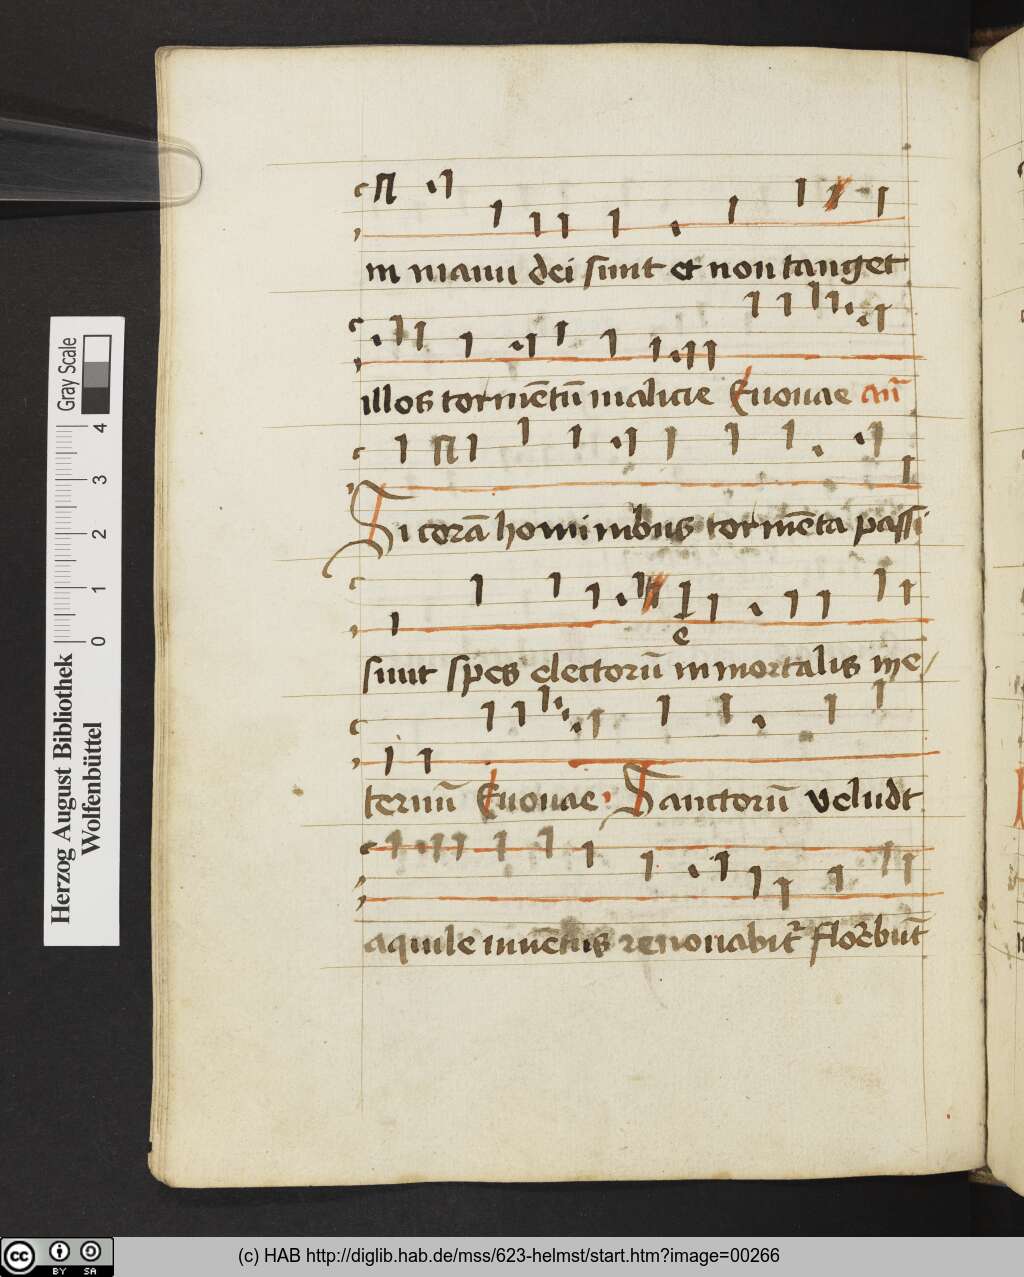 in manu dei sunt et non tanget
illos tormētū malicie Euouae añ
Si corā hominibus tormēta passi
e
sunt spes electorū inmortalis in e/
ternū Euouae Sanctorū velud t
aquile iuuētus renouabit᷑ florebūt
Herzog August Bibliothek
Wolfenbüttel
Gray Scale
0 1 2 3 4
cc BY SA
(c) HAB http://diglib.hab.de/mss/623-helmst/start.htm?image=00266